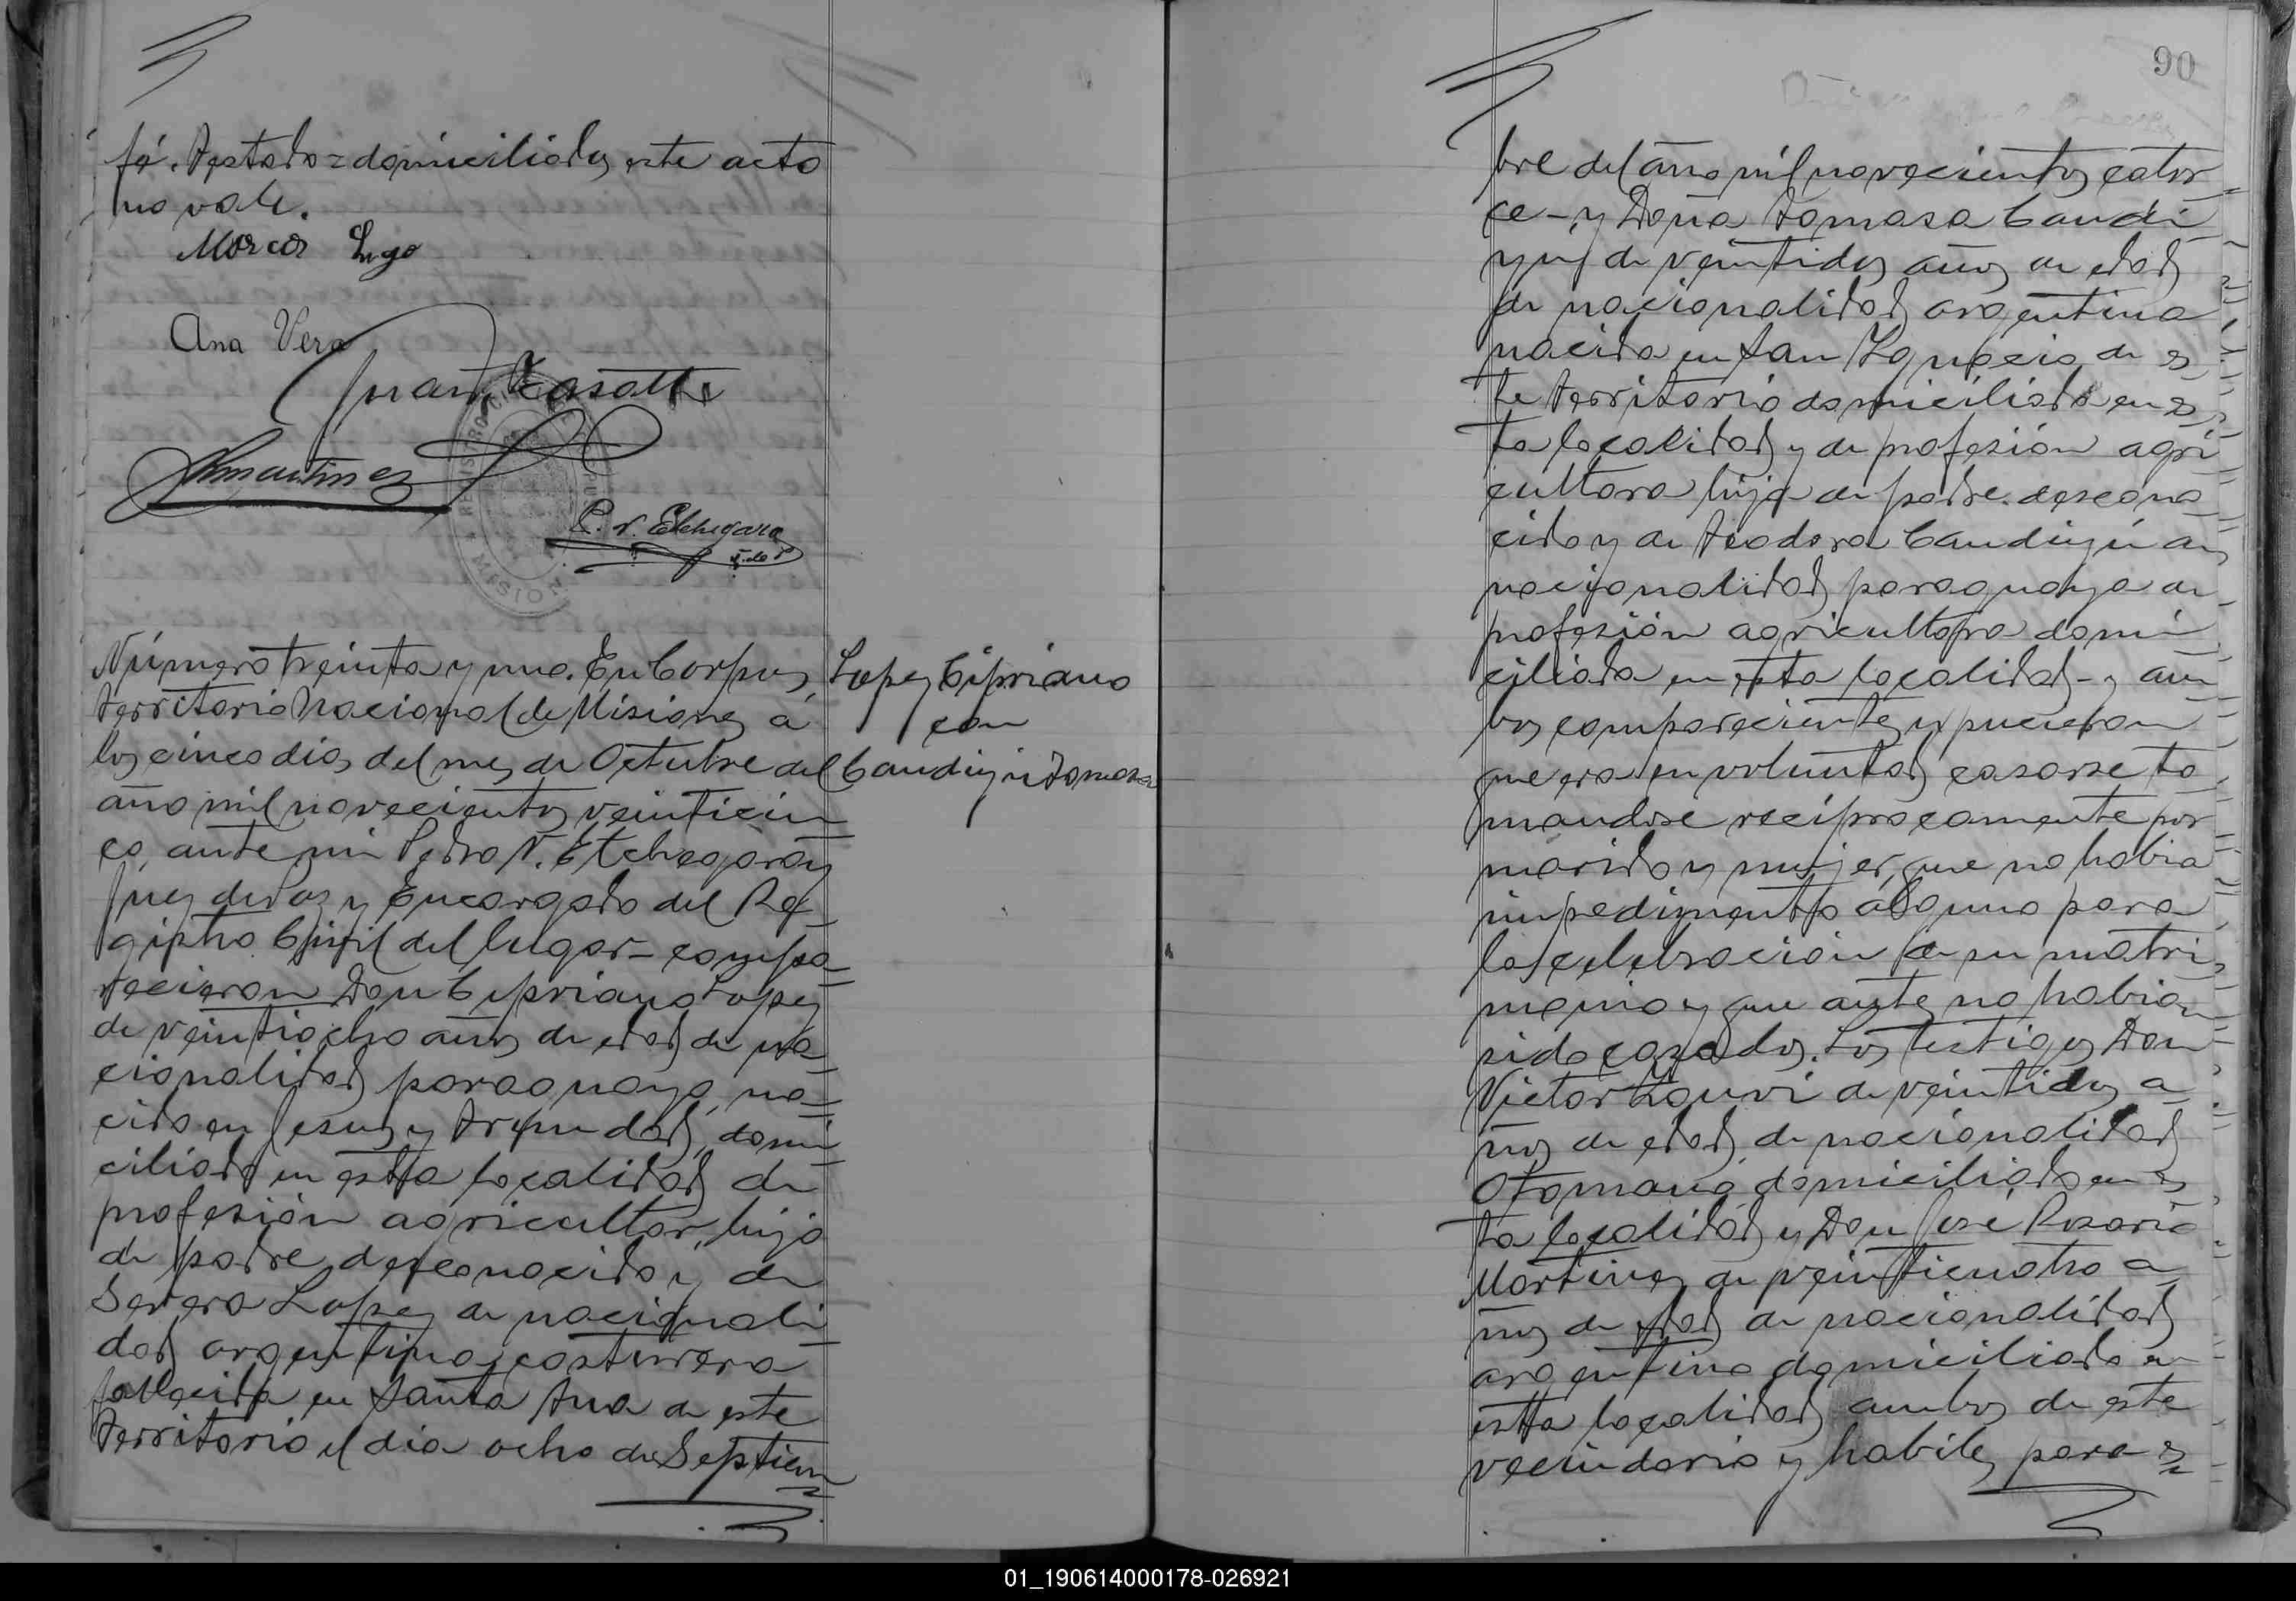 fé. Testado = domiciliados, este acto
no vale.
Marcos Lugo
Ana Vera
Juan
Martinez
P. N. Etchegaray
J. de P.
REGISTRO CIVIL
CORPUS
MISIONES
Número treinta y uno. En Corpus,
Territorio Nacional de Misiones á
los cinco dias del mes de Octubre del
año mil novecientos veinticin
co, ante mi Pedro N. Etchegaray
Juez de Paz y Encargado del Re
gistro Civil del lugar - compa
recieron Don Cipriano Lopez
de veintiocho años de edad de na
cionalidad paraguaya, na
cido en Jesus y Trinidad, domi
ciliado en esta localidad de
profesión agricultor, hijo
de padre desconocido y de
Severa Lopez de nacionali
dad argentina, costurera
fallecida en Santa Ana de este
Territorio el dia ocho de Septiem
Lopez Cipriano
con
Candiyú Tomasa
90
bre del año mil novecientos cator
ce - y Doña Tomasa Candi
yú de veintidos años de edad
de nacionalidad argentina
nacida en San Ignacio de es
te Territorio domiciliada en es
ta localidad y de profesión agri
cultora hija de padre descono
cido y de Teodora Candiyú de
nacionalidad paraguaya de
profesión agricultora domi
ciliada en esta localidad - y am
bos comparecientes expucieron
que era su voluntad casarse to
mandose recíprocamente por
marido y mujer, que no habia
impedimento alguno para
la celebración de su matri
monio y que antes no habian
sido casados. Los testigos Don
Victor de veintidos a
ños de edad, de nacionalidad
Otomana, domiciliado en es
ta localidad y Don José Rosario
Martinez de veinticuatro a
ños de edad de nacionalidad
argentino domiciliado en
esta localidad ambos de este
vecindario y habiles para es
01_190614000178-026921